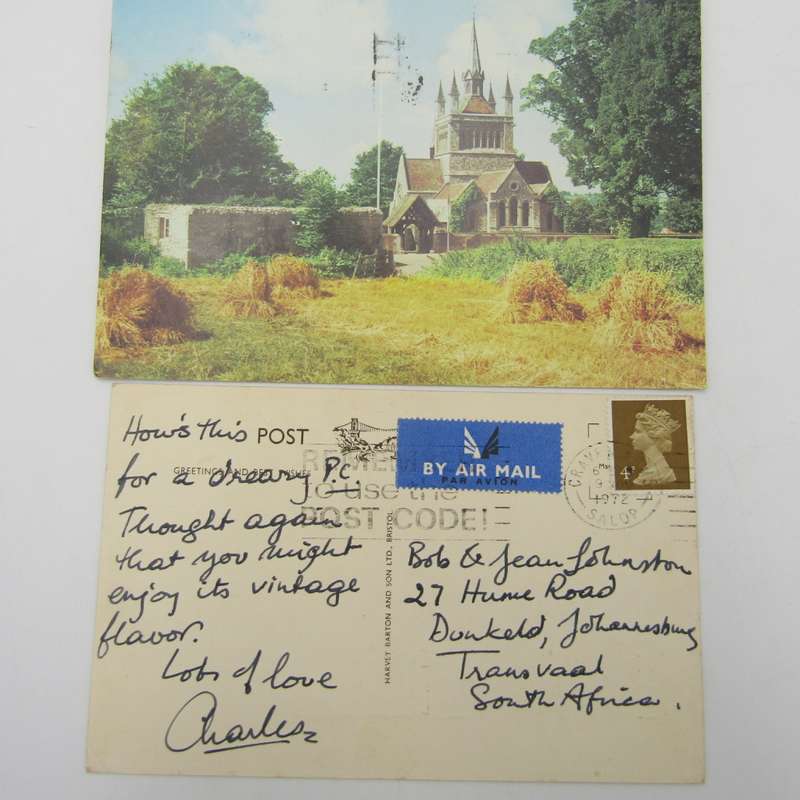 How's this
for a dreary P.C.
Thought again
that you might
enjoy its vintage
flavor.
Lots of love
Charles
POST
GREETINGS AND BEST WISHES
REMEM
to use the
POST CODE!
HARVEY BARTON AND SON LTD., BRISTOL
BY AIR MAIL
PAR AVION
4P
1972
SALOP
Bob & Jean Johnston
27 Hume Road
Dunkeld, Johannesburg
Transvaal
South Africa.